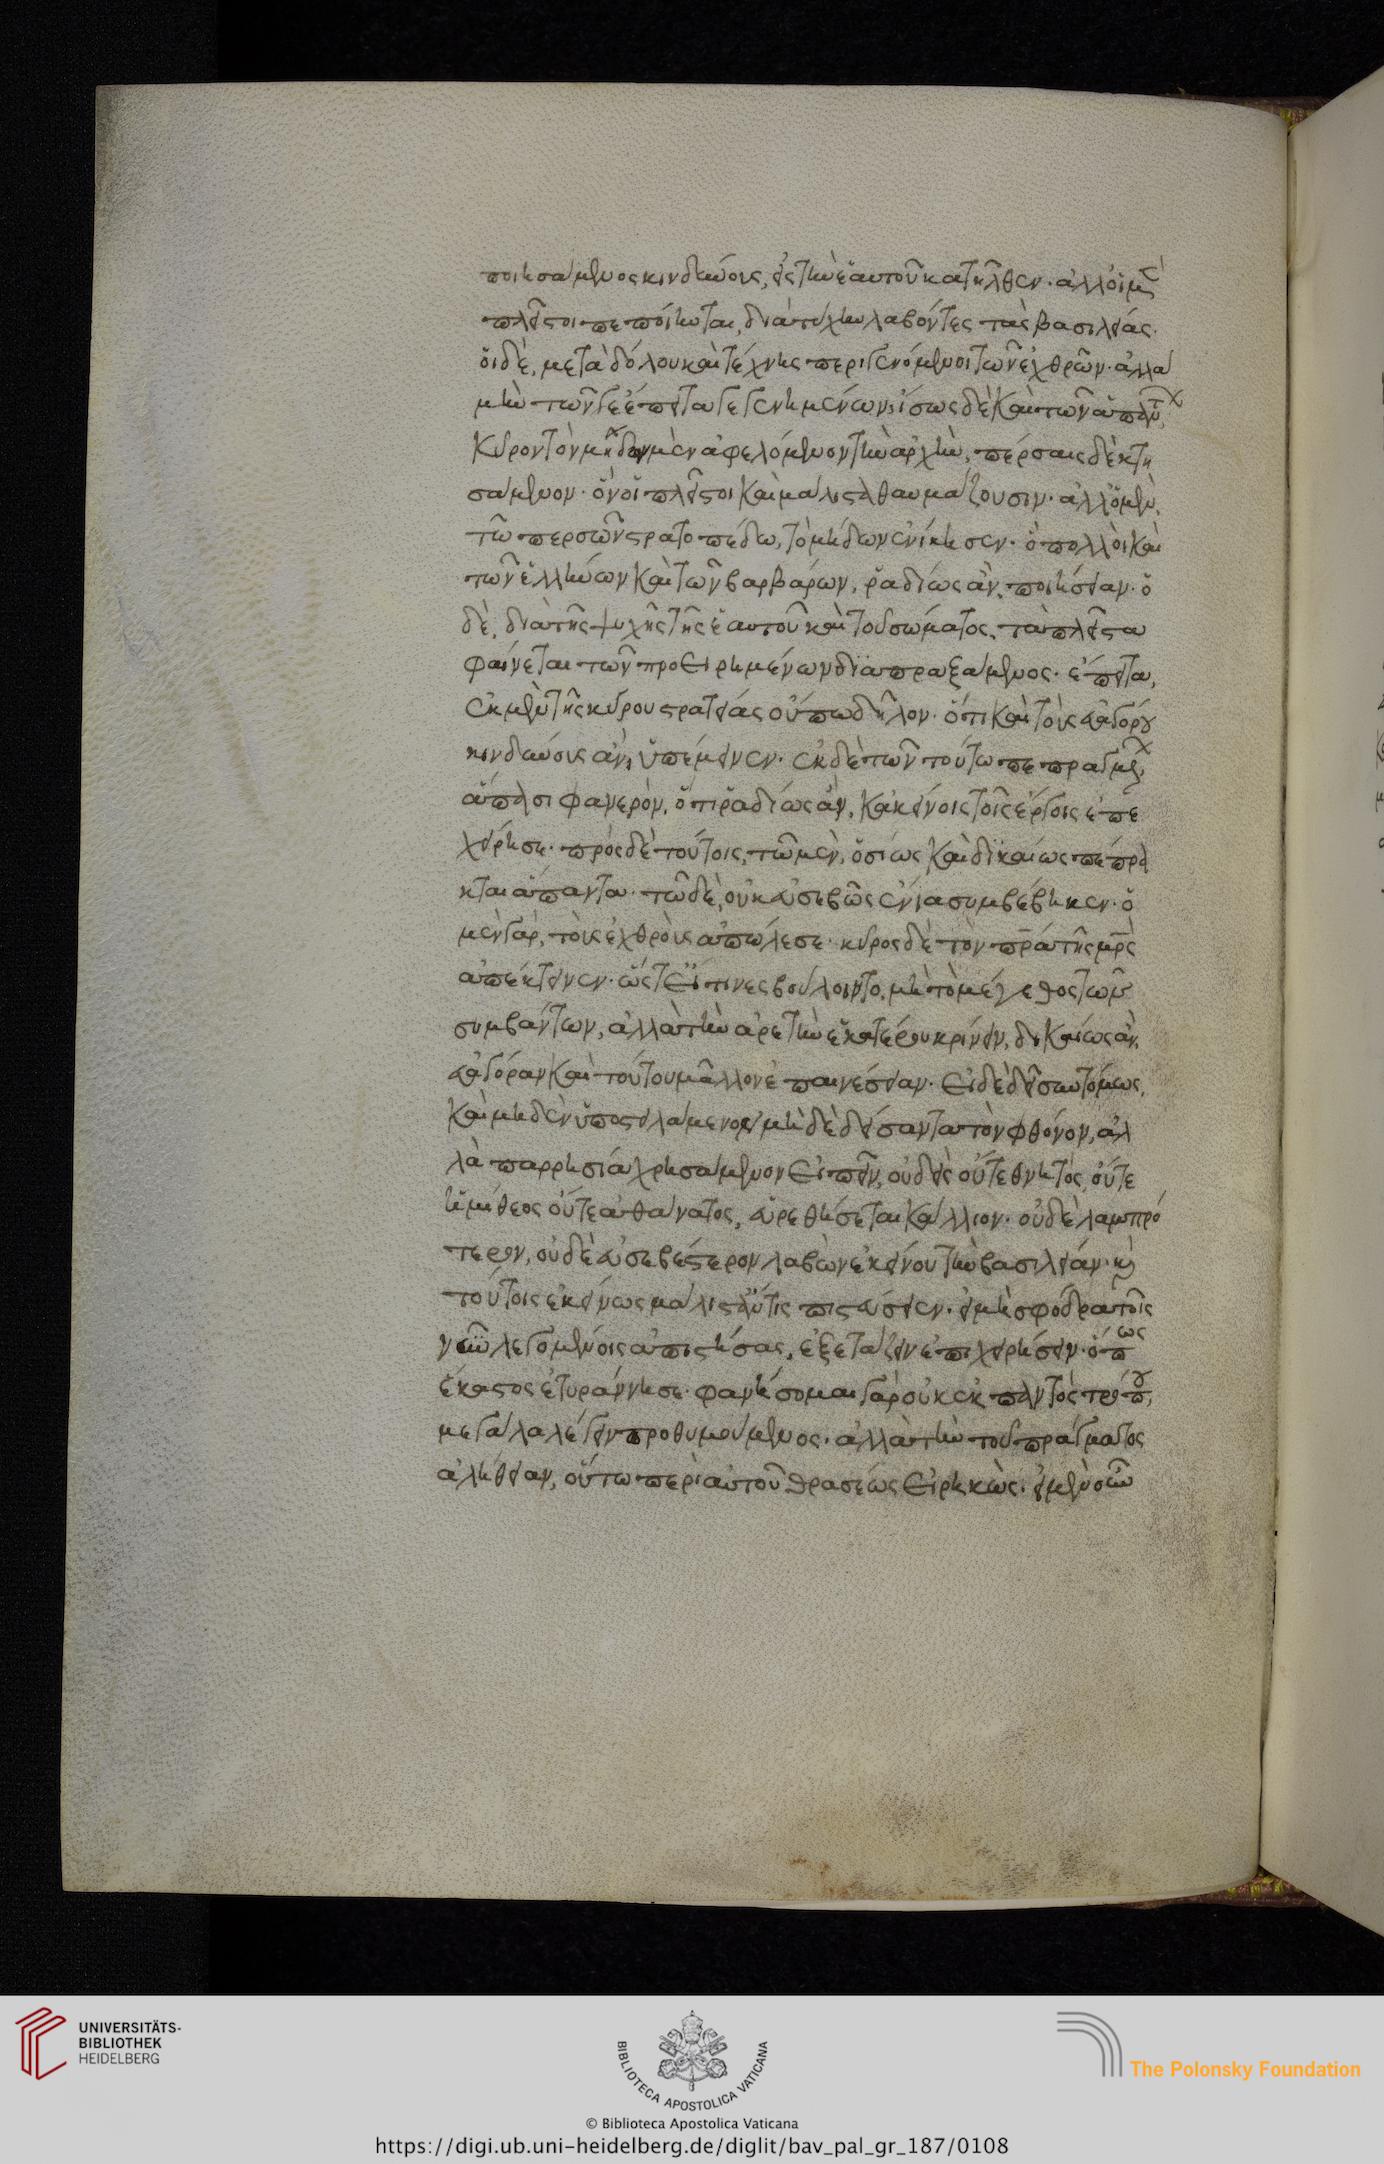 ποιησάμενος κινδύνοις, εἰς τὴν ἑαυτοῦ κατῆλθεν. ἀλλ' οἱ μὲν
πλεῖστοι πεποίηνται, διὰ τύχην λαβόντες τὰς βασιλείας.
οἱ δὲ, μετὰ δόλου καὶ τέχνης περιγενόμενοι τῶν ἐχθρῶν. ἀλλὰ
μὴν τῶν γε ἔπειτα γεγενημένων, ἴσως δὲ καὶ τῶν ἁπάντων,
Κῦρον τὸν μήδων μὲν ἀφελόμενον τὴν ἀρχὴν, πέρσαις δὲ κτη
σάμενον. ὃν οἱ πλεῖστοι καὶ μάλιστα θαυμάζουσιν. ἀλλ' ὁ μὲν,
τῶ περσῶν στρατοπέδω, τὸ μήδων ἐνίκησεν. ὃ πολλοὶ καὶ
τῶν ἑλλήνων καὶ τῶν βαρβάρων, ῥαδίως ἂν ποιήσειαν. ὁ
δὲ, διὰ τῆς ψυχῆς τῆς ἑαυτοῦ καὶ τοῦ σώματος, τὰ πλεῖστα
φαίνεται τῶν προειρημένων διαπραξάμενος. ἔπειτα,
ἐκ μὲν τῆς κύρου στρατείας οὔπω δῆλον. ὅτι καὶ τοὺς εὐαγόρου
κινδύνους ἂν, ὑπέμεινεν. ἐκ δὲ τῶν τούτω πεπραγμένων,
ἅπασι φανερὸν, ὅτι ῥαδίως ἂν, κἀκείνοις τοῖς ἔργοις ἐπε
χείρησε. πρὸς δὲ τούτοις, τῶ μὲν, ὁσίως καὶ δικαίως πέπρα
κται ἅπαντα. τῶ δὲ, οὐκ εὐσεβῶς ἔνια συμβέβηκεν. ὁ
μὲν γὰρ, τοὺς ἐχθροὺς ἀπώλεσε. κῦρος δὲ τὸν πρα τῆς μρς
ἀπέκτεινεν. ὥστ' εἴ τινες βούλοιντο, μὴ τὸ μέγεθος τῶν
συμβάντων, ἀλλὰ τὴν ἀρετὴν ἑκατέρου κρίνειν, δικαίως ἂν,
εὐαγόραν καὶ τούτου μᾶλλον ἐπαινέσειαν. εἰ δὲ δεῖ συντόμως,
καὶ μηδὲν ὑποστειλάμενον μηδὲ δείσαντα τὸν φθόνον, ἀλ
λὰ παρρησία χρησάμενον εἰπεῖν, οὐδεὶς οὔτε θνητὸς, οὔτε
ἡμίθεος οὔτε ἀθάνατος, εὑρεθήσεται κάλλιον. οὐδὲ λαμπρό
τερον, οὐδὲ εὐσεβέστερον λαβὼν ἐκείνου τὴν βασιλείαν. καὶ
τούτοις ἐκείνως μάλιστ' ἄν τις πιστεύσειεν. εἰ μὴ σφόδρα τοῖς
νῦν λεγομένοις ἀπιστήσας, ἐξετάζειν ἐπιχειρήσειεν. ὅπως
ἕκαστος ἐτυράννησε. φανήσομαι γὰρ οὐκ ἐκ παντὸς τρόπου,
μεγάλα λέγειν προθυμούμενος. ἀλλὰ τὴν τοῦ πράγματος
ἀλήθειαν, οὕτω περὶ αὐτοῦ θρασέως εἰρηκὼς. εἰ μὲν οὖν
UNIVERSITÄTS-
BIBLIOTHEK
HEIDELBERG
BIBLIOTECA APOSTOLICA VATICANA
The Polonsky Foundation
© Biblioteca Apostolica Vaticana
https://digi.ub.uni-heidelberg.de/diglit/bav_pal_gr_187/0108